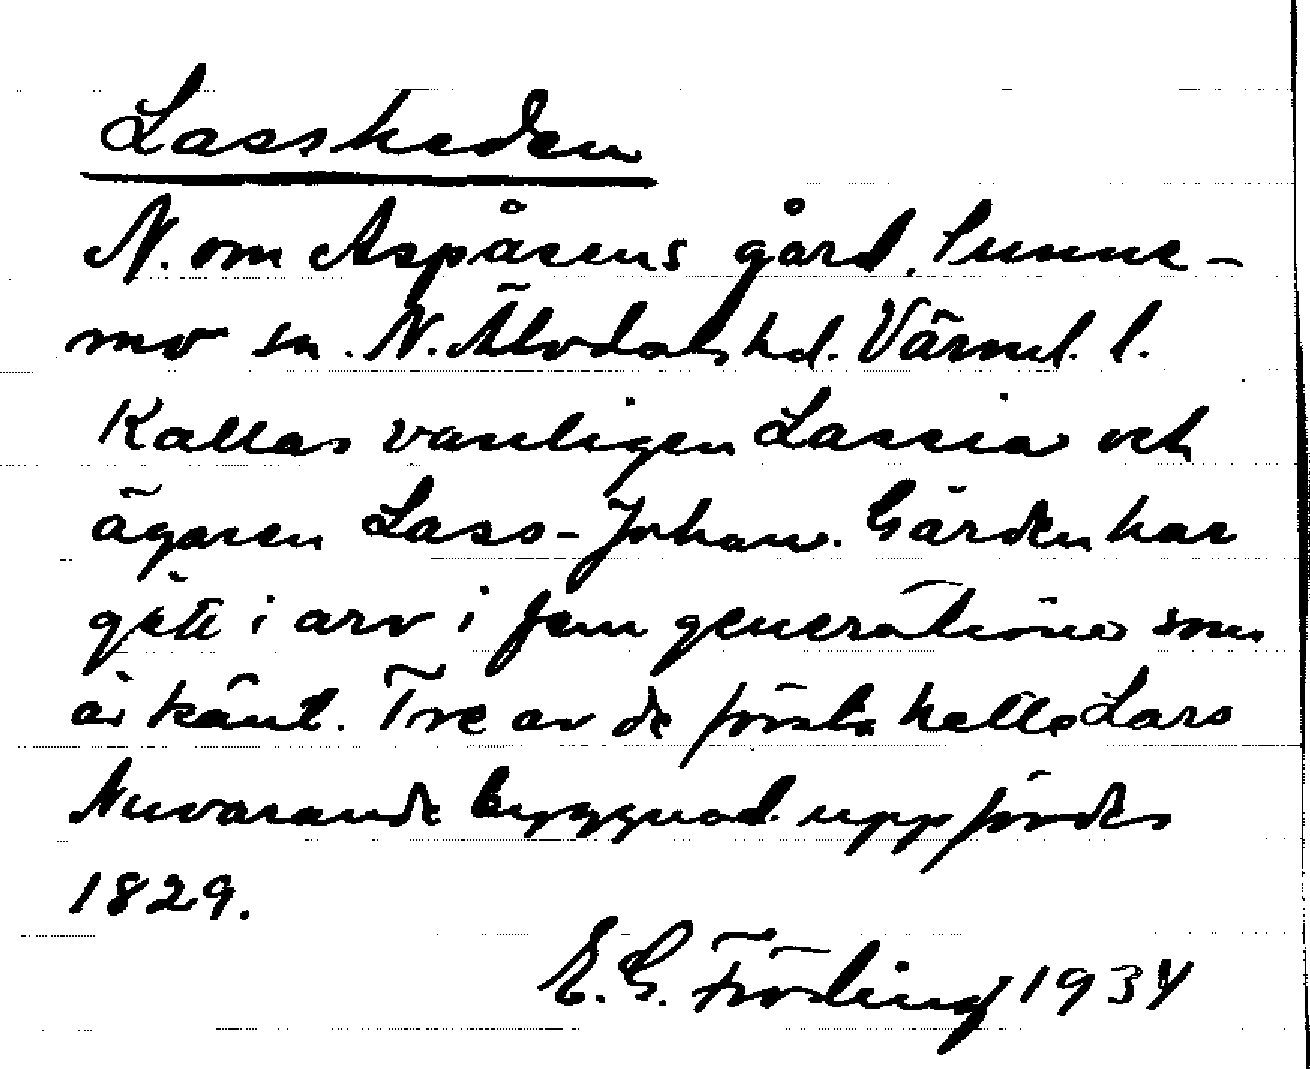 Lassheden
N. om Aspåsens gård. Sunne-
mo sn. N. Älvdals hd. Värml. l.
Kallas vanligen Lassia och
ägaren Lass-Johan. Gården har
gått i arv i fem generationer som
är känt. Tre av de första hette Lars
Nuvarande byggnad uppfördes
1829.
E. G. Fröding 1934